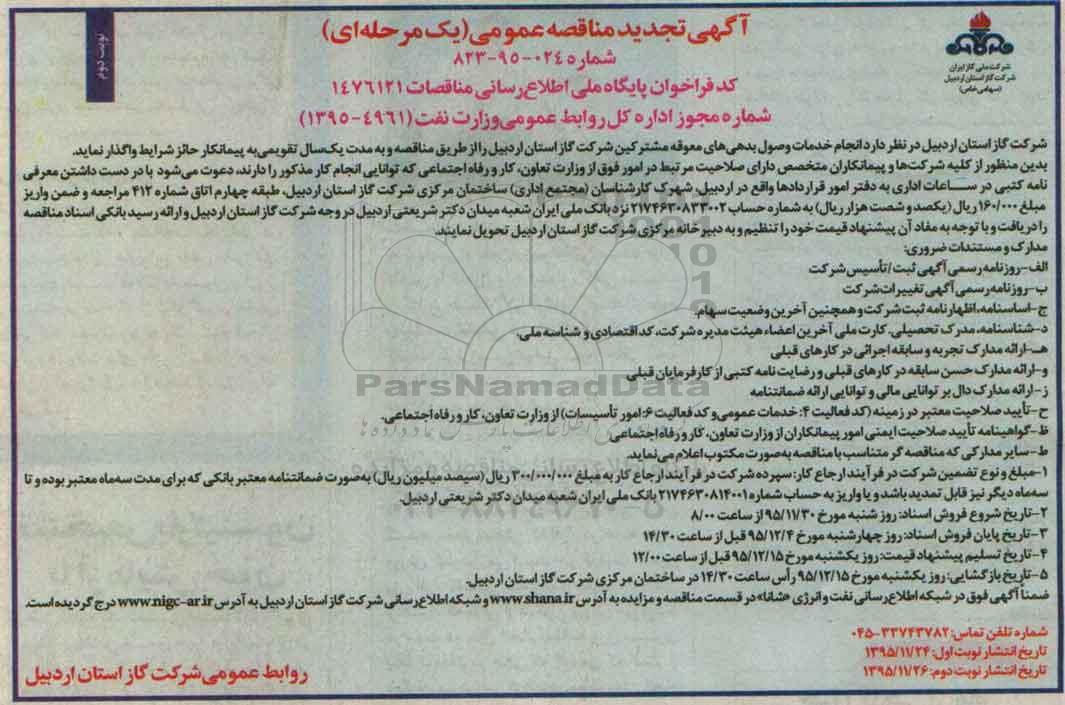 آگهی تجدید مناقصه عمومی (یک مرحله‌ای)
شماره ۰۲۴-۹۵-۸۲۳
کد فراخوان پایگاه ملی اطلاع‌رسانی مناقصات ۱۴۷۶۱۲۱
شماره مجوز اداره کل روابط عمومی وزارت نفت (۴۹۶۱-۱۳۹۵)
نوبت دوم
شرکت ملی گاز ایران
شرکت گاز استان اردبیل
(سهامی خاص)
شرکت گاز استان اردبیل در نظر دارد انجام خدمات وصول بدهی‌های معوقه مشترکین شرکت گاز استان اردبیل را از طریق مناقصه و به مدت یک‌سال تقویمی به پیمانکار حائز شرایط واگذار نماید.
بدین منظور از کلیه شرکت‌ها و پیمانکاران متخصص دارای صلاحیت مرتبط در امور فوق از وزارت تعاون، کار و رفاه اجتماعی که توانایی انجام کار مذکور را دارند، دعوت می‌شود با در دست داشتن معرفی
نامه کتبی در ساعات اداری به دفتر امور قراردادها واقع در اردبیل، شهرک کارشناسان (مجتمع اداری) ساختمان مرکزی شرکت گاز استان اردبیل، طبقه چهارم اتاق شماره ۴۱۲ مراجعه و ضمن واریز
مبلغ ۱۶۰/۰۰۰ ریال (یکصد و شصت هزار ریال) به شماره حساب ۲۱۷۴۶۳۰۸۳۳۰۰۲ نزد بانک ملی ایران شعبه میدان دکتر شریعتی اردبیل در وجه شرکت گاز استان اردبیل و ارائه رسید بانکی اسناد مناقصه
را دریافت و با توجه به مفاد آن پیشنهاد قیمت خود را تنظیم و به دبیرخانه مرکزی شرکت گاز استان اردبیل تحویل نمایند.
مدارک و مستندات ضروری:
الف-روزنامه رسمی آگهی ثبت/تأسیس شرکت
ب-روزنامه رسمی آگهی تغییرات شرکت
ج-اساسنامه، اظهارنامه ثبت شرکت و همچنین آخرین وضعیت سهام.
د-شناسنامه، مدرک تحصیلی، کارت ملی آخرین اعضاء هیئت مدیره شرکت، کد اقتصادی و شناسه ملی.
هـ-ارائه مدارک تجربه و سابقه اجرائی در کارهای قبلی
و-ارائه مدارک حسن سابقه در کارهای قبلی و رضایت نامه کتبی از کارفرمایان قبلی
ز-ارائه مدارک دال بر توانایی مالی و توانایی ارائه ضمانتنامه
ح-تأیید صلاحیت معتبر در زمینه (کد فعالیت ۴: خدمات عمومی و کد فعالیت ۶: امور تأسیسات) از وزارت تعاون، کار و رفاه اجتماعی.
ظ-گواهینامه تأیید صلاحیت ایمنی امور پیمانکاران از وزارت تعاون، کار و رفاه اجتماعی
ط-سایر مدارکی که مناقصه گر متناسب با مناقصه به‌صورت مکتوب اعلام می‌نماید.
۱-مبلغ و نوع تضمین شرکت در فرآیند ارجاع کار: سپرده شرکت در فرآیند ارجاع کار به مبلغ ۳۰۰/۰۰۰/۰۰۰ ریال (سیصد میلیون ریال) به‌صورت ضمانتنامه معتبر بانکی که برای مدت سه‌ماه معتبر بوده و تا
سه‌ماه دیگر نیز قابل تمدید باشد و یا واریز به حساب شماره ۲۱۷۴۶۳۰۸۱۴۰۰۱ بانک ملی ایران شعبه میدان دکتر شریعتی اردبیل.
۲-تاریخ شروع فروش اسناد: روز شنبه مورخ ۹۵/۱۱/۳۰ از ساعت ۸/۰۰
۳-تاریخ پایان فروش اسناد: روز چهارشنبه مورخ ۹۵/۱۲/۴ قبل از ساعت ۱۴/۳۰
۴-تاریخ تسلیم پیشنهاد قیمت: روز یکشنبه مورخ ۹۵/۱۲/۱۵ قبل از ساعت ۱۲/۰۰
۵-تاریخ بازگشایی: روز یکشنبه مورخ ۹۵/۱۲/۱۵ رأس ساعت ۱۴/۳۰ در ساختمان مرکزی شرکت گاز استان اردبیل.
ضمناً آگهی فوق در شبکه اطلاع‌رسانی نفت و انرژی «شانا» در قسمت مناقصه و مزایده به آدرس www.shana.ir و شبکه اطلاع‌رسانی شرکت گاز استان اردبیل به آدرس www.nigc-ar.ir درج گردیده است.
شماره تلفن تماس: ۳۳۷۴۳۷۸۲-۰۴۵
تاریخ انتشار نوبت اول: ۱۳۹۵/۱۱/۲۴
تاریخ انتشار نوبت دوم: ۱۳۹۵/۱۱/۲۶
روابط عمومی شرکت گاز استان اردبیل
ParsNamadData